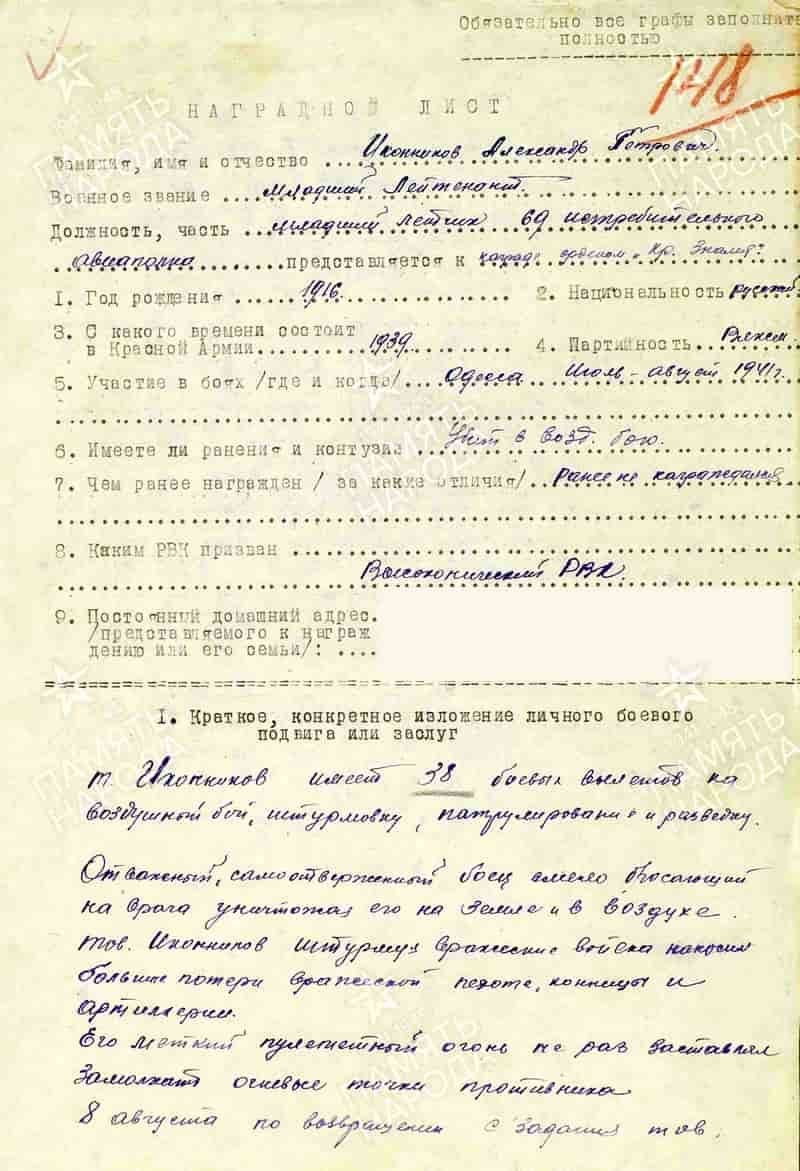 Обязательно все графы заполнить
полностью
1418
НАГРАДНОЙ ЛИСТ
Фамилия, имя и отчество ... Иконников Александр Петрович.
Военное звание .... Младший Лейтенант.
Должность, часть младший летчик 69 истребительного
авиаполка ........ представляется к награде орденом "Кр. Знамя"
1. Год рождения ...... 1916 ........ 2. Национальность русский
3. С какого времени состоит
в Красной Армии.......... 1939 ........ 4. Партийность Влксм
5. Участие в боях /где и когда/.... Одесса Июль – август 1941 г.
6. Имеете ли ранения и контузии .. Убит в возд. бою.
7. Чем ранее награжден / за какие отличия/.. Ранее не награждался
8. Каким РВК призван
РВК.
9. Постоянный домашний адрес.
/представляемого к награж
дению или его семьи/: ....
I. Краткое, конкретное изложение личного боевого
подвига или заслуг
т. Иконников имеет 38 боевых вылетов на
воздушный бой, штурмовку, патрулирование и разведку.
Отважный, самоотверженный боец смело бросающий
на врага уничтожая его на земле и в воздухе.
тов. Иконников штурмуя вражеские войска наносил
большие потери вражеской пехоте, конницы и
артиллерии.
Его меткий пулеметный огонь не раз заставлял
замолкать огневые точки противника
8 августа по возвращении с задания тов.
ПАМЯТЬ НАРОДА